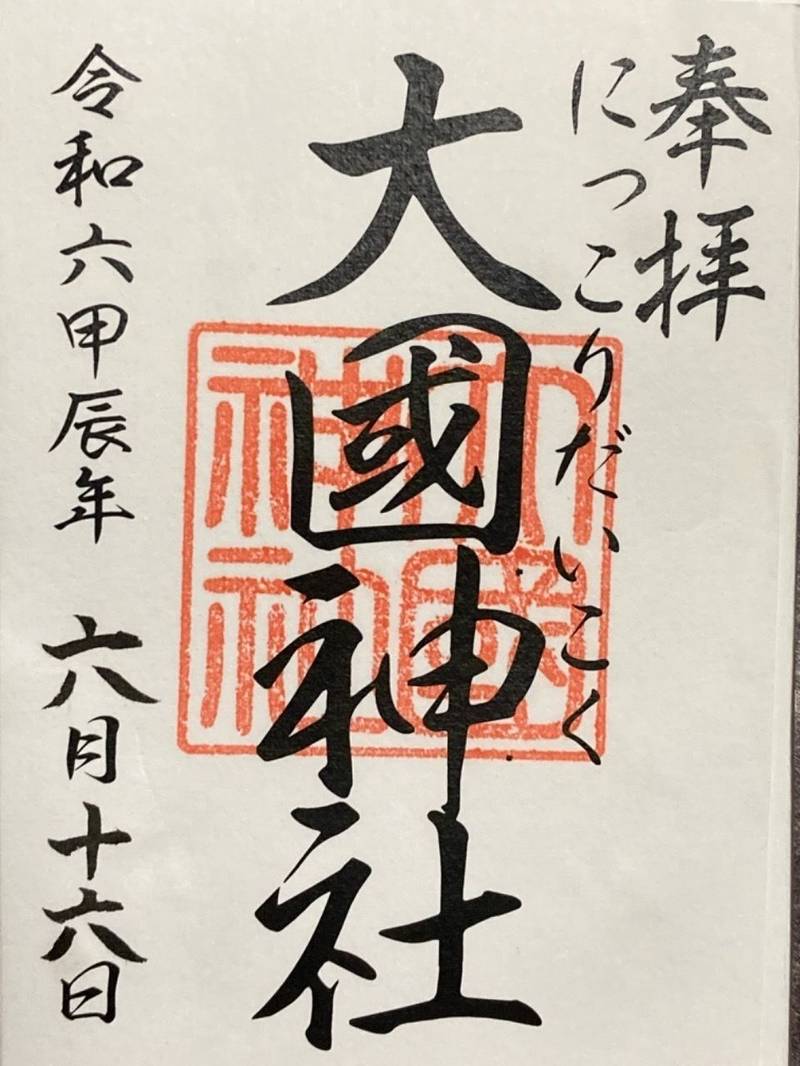 奉拝
にっこりだいこく
大國神社
大國神社
令和六甲辰年 六月十六日